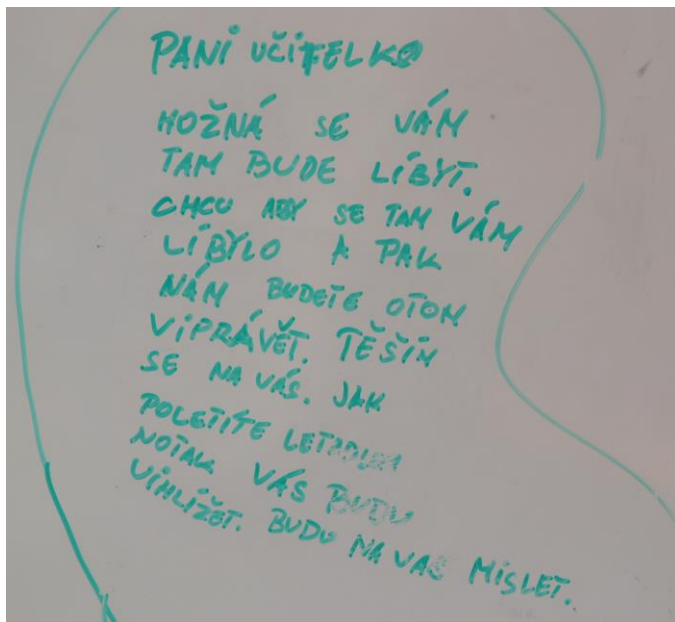 PANÍ UČITELKO
MOŽNÁ SE VÁM
TAM BUDE LÍBYT.
CHCU ABY SE TAM VÁM
LÍBYLO A PAK
NÁM BUDETE OTOM
VIPRÁVĚT. TĚŠÍM
SE NA VÁS. JAK
POLETITE LETADLEM
NOTAK VÁS BUDU
VIHLÍŽET. BUDU NA VÁS MISLET.